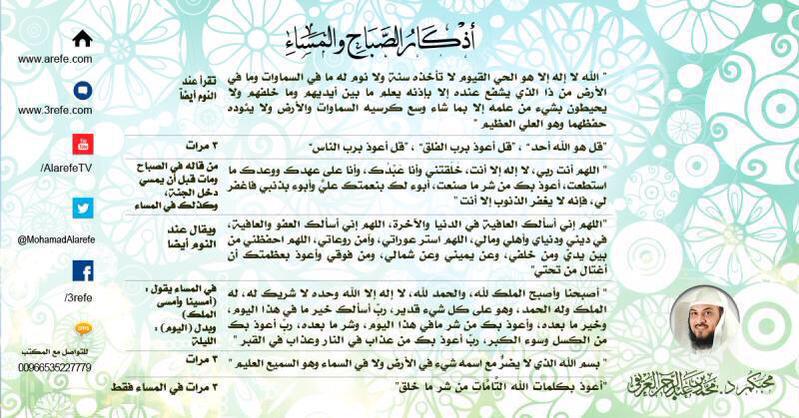 أذكار الصباح والمساء
" الله لا إله إلا هو الحي القيوم لا تأخذه سنة ولا نوم له ما في السماوات وما في
الأرض من ذا الذي يشفع عنده إلا بإذنه يعلم ما بين أيديهم وما خلفهم ولا
يحيطون بشيء من علمه إلا بما شاء وسع كرسيه السماوات والأرض ولا يئوده
حفظهما وهو العلي العظيم "
تقرأ عند
النوم أيضاً
"قل هو الله أحد" ، "قل أعوذ برب الفلق" ، "قل أعوذ برب الناس"
٣ مرات
" اللهم أنت ربي، لا إله إلا أنت، خلقتني وأنا عبْدُك، وأنا على عهدك ووعدك ما
استطعت، أعوذ بك من شر ما صنعت، أبوء لك بنعمتك عليّ وأبوء بذنبي فاغفر
لي، فإنه لا يغفر الذنوب إلا أنت "
من قاله في الصباح
ومات قبل أن يمسي
دخل الجنة،
وكذلك في المساء
"اللهم إني أسألك العافية في الدنيا والآخرة، اللهم إني أسألك العفو والعافية،
في ديني ودنياي وأهلي ومالي، اللهم استر عوراتي، وآمن روعاتي، اللهم احفظني من
بين يديّ ومن خلفي، وعن يميني وعن شمالي، ومن فوقي وأعوذ بعظمتك أن
أغتال من تحتي"
ويقال عند
النوم أيضا
" أصبحنا وأصبح الملك لله، والحمد لله، لا إله إلا الله وحده لا شريك له، له
الملك وله الحمد، وهو على كل شيء قدير، ربّ أسألك خير ما في هذا اليوم،
وخير ما بعده، وأعوذ بك من شر مافي هذا اليوم، وشر ما بعده، ربّ أعوذ بك
من الكسل وسوء الكبر، ربّ أعوذ بك من عذاب في النار وعذاب في القبر "
في المساء يقول :
(أمسينا وأمسى
الملك)
ويدل (اليوم) :
الليلة
" بسم الله الذي لا يضرُّ مع اسمه شيء في الأرض ولا في السماء وهو السميع العليم "
٣ مرات
"أعوذ بكلمات الله التَّامَّات من شر ما خلق"
٣ مرات في المساء فقط
www.arefe.com
www.3refe.com
You
Tube
/AlarefeTV
@MohamadAlarefe
/3refe
sms
للتواصل مع المكتب
00966535227779
محبكم د. محمد بن عبدالرحمن العريفي